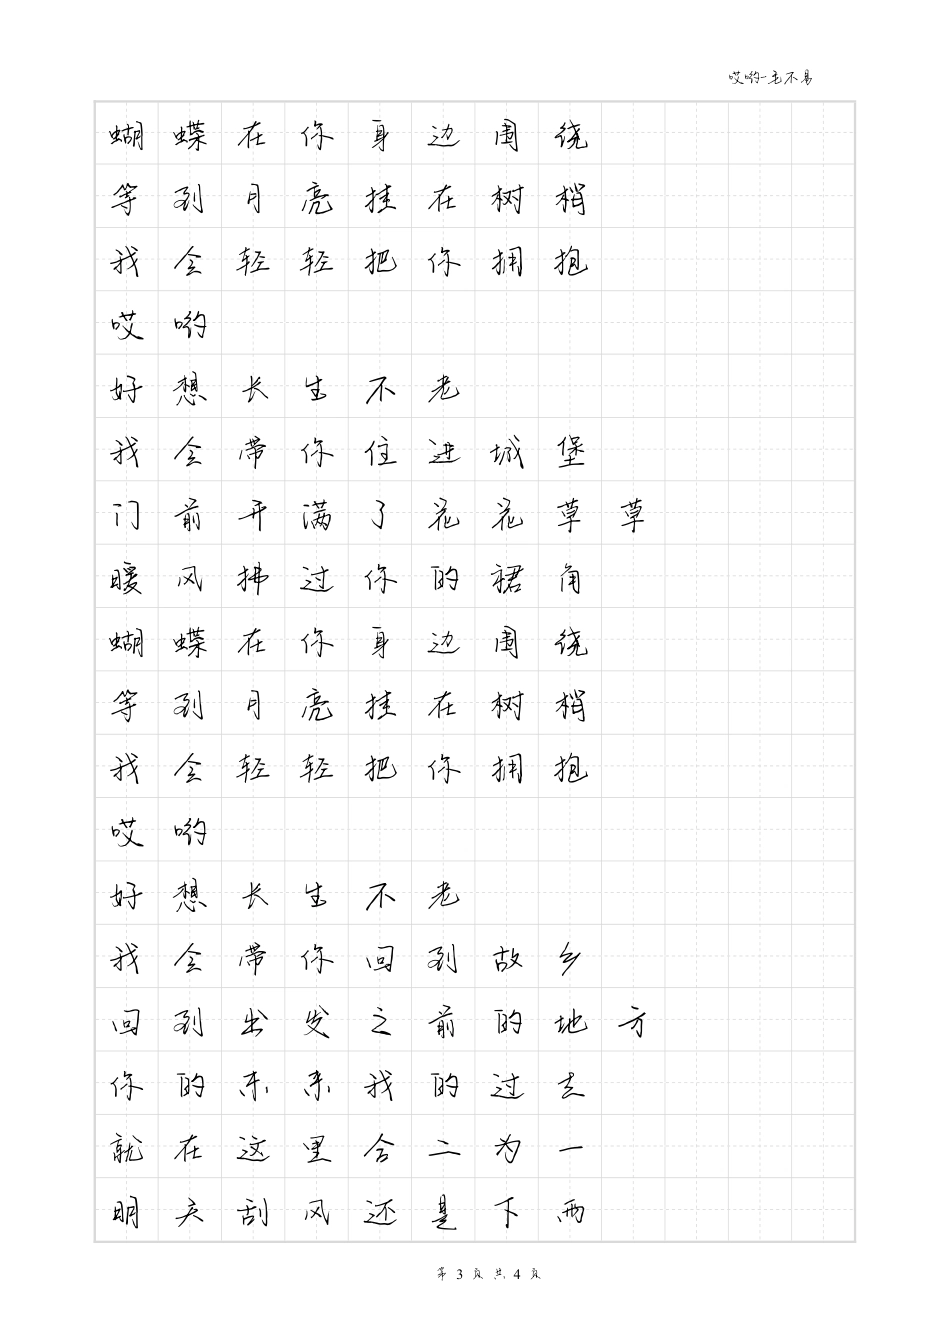 哎哟-毛不易
蝴蝶在你身边围绕
等到月亮挂在树梢
我会轻轻把你拥抱
哎哟
好想长生不老
我会带你住进城堡
门前开满了花花草草
暖风拂过你的裙角
蝴蝶在你身边围绕
等到月亮挂在树梢
我会轻轻把你拥抱
哎哟
好想长生不老
我会带你回到故乡
回到出发之前的地方
你的未来我的过去
就在这里合二为一
明天刮风还是下雨
第 3 页 共 4 页